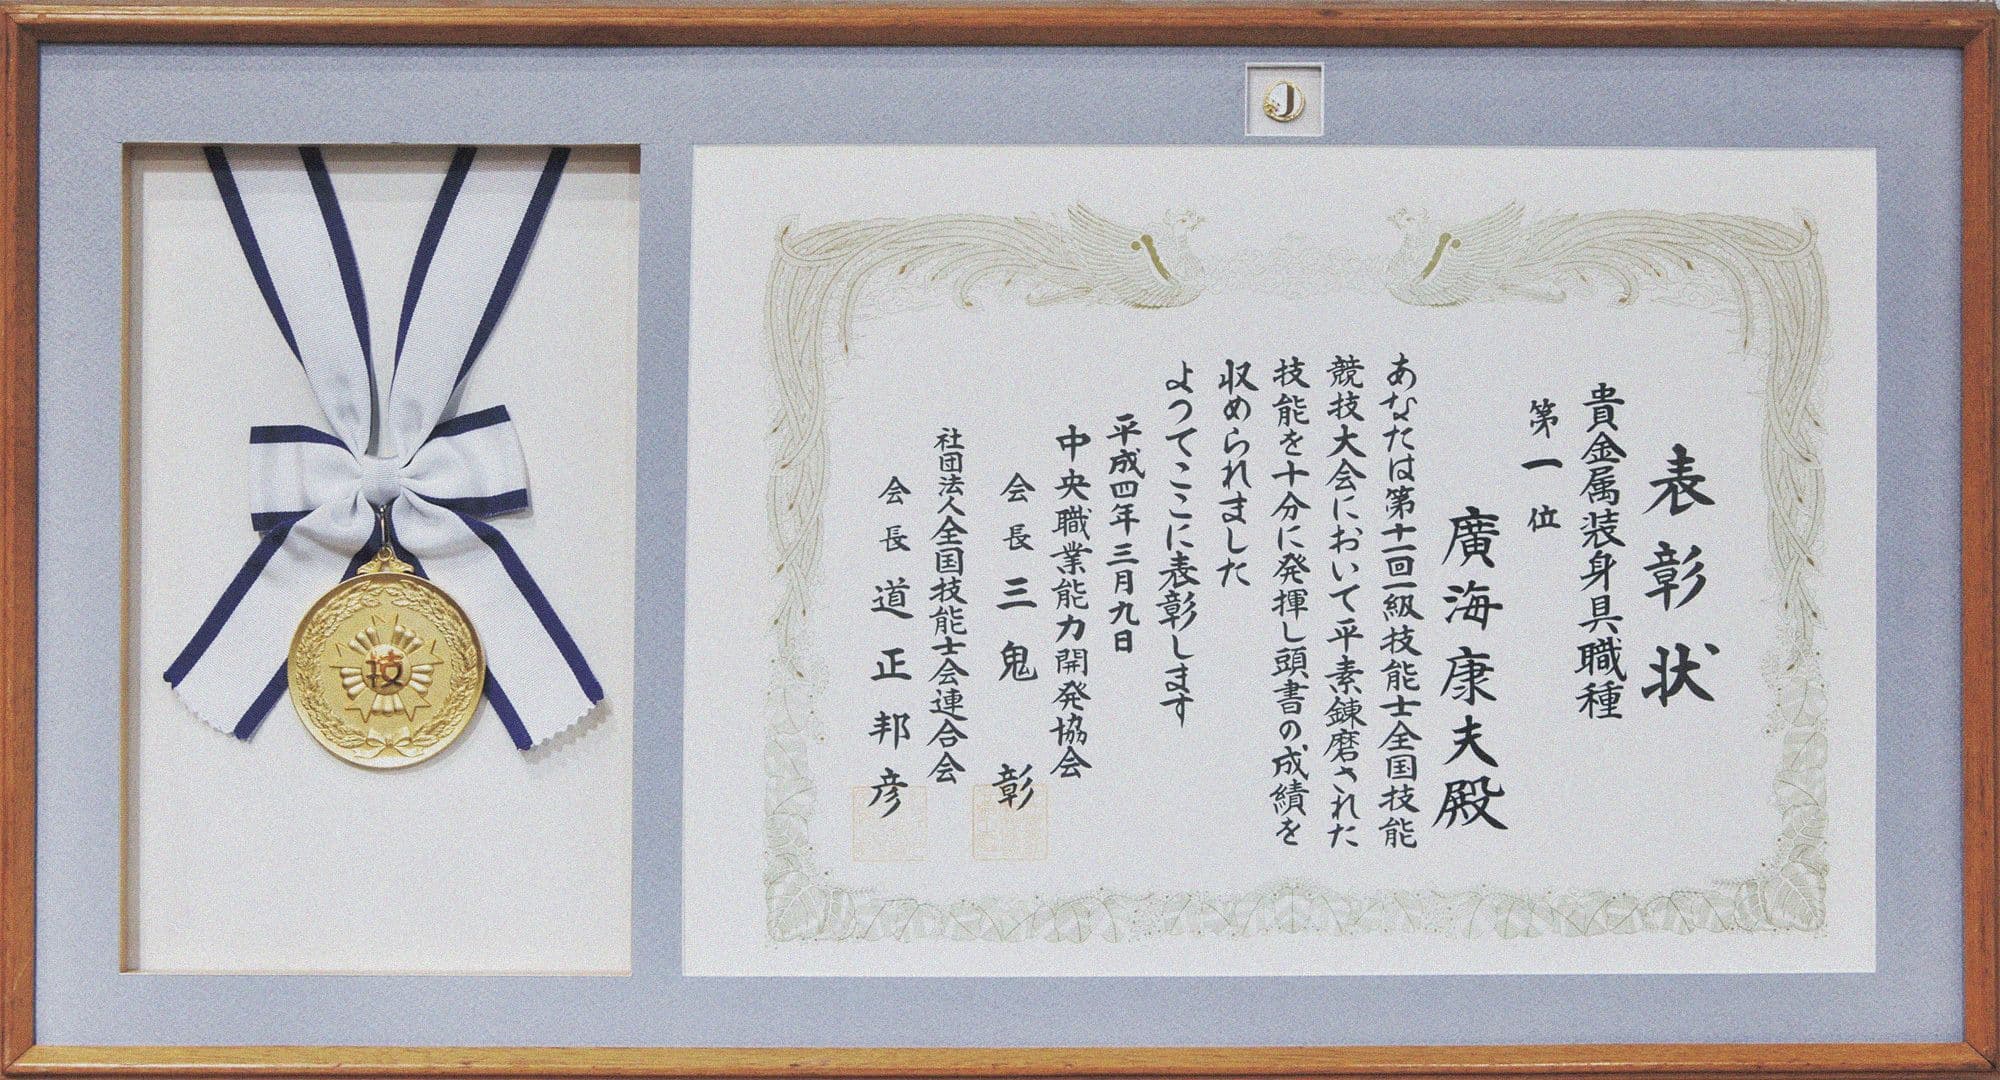 表彰状
貴金属装身具職種
第一位
廣海康夫殿
あなたは第十一回一級技能士全国技能
競技大会において平素錬磨された
技能を十分に発揮し頭書の成績を
収められました
よってここに表彰します
平成四年三月九日
中央職業能力開発協会
会長 三鬼彰
社団法人全国技能士会連合会
会長 道正邦彦
技